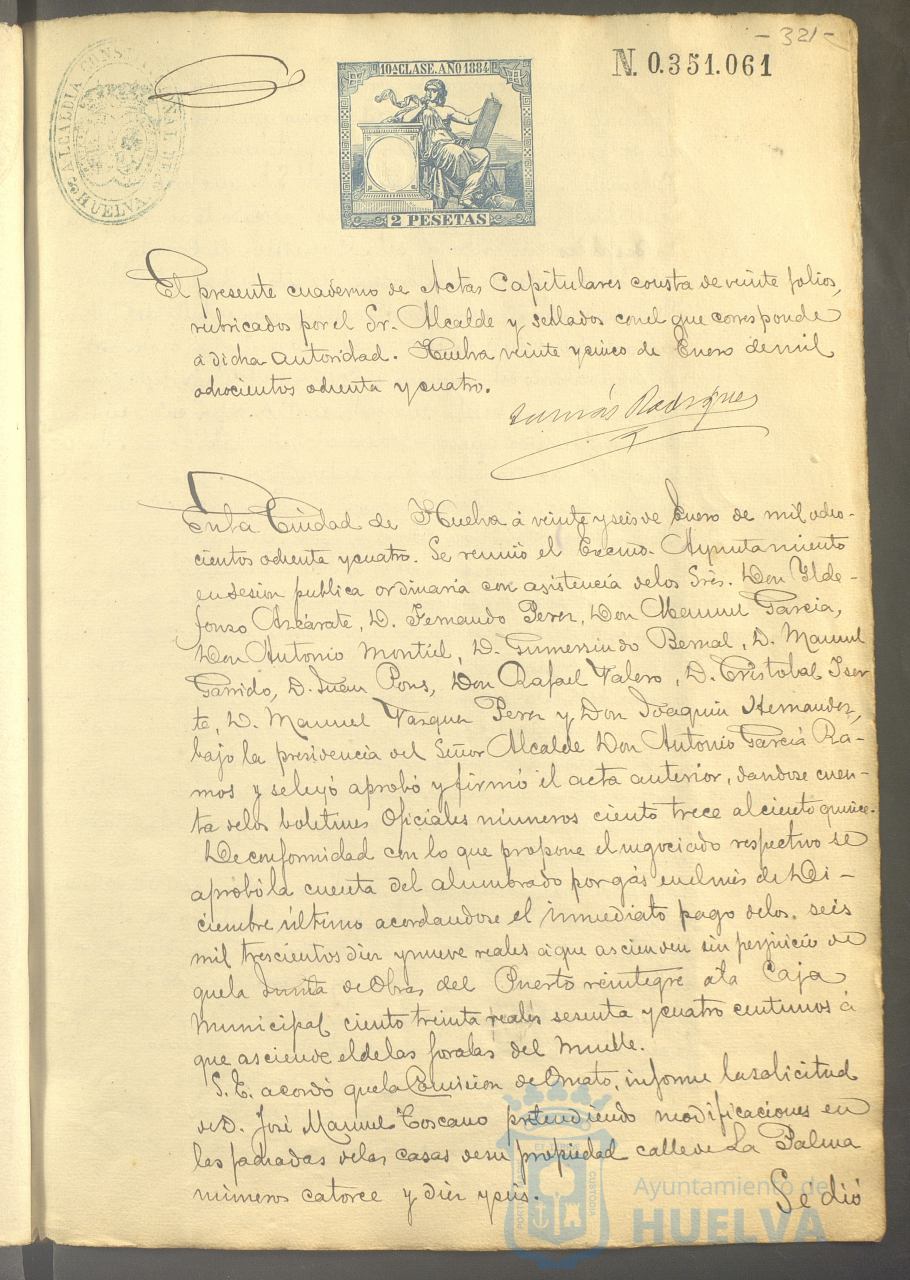 - 321 -
N. 0.351.061
ALCALDIA CONSTITUCIONAL DE HUELVA
10ª CLASE. AÑO 1884
2 PESETAS
El presente cuaderno de Actas Capitulares consta de veinte folios,
rubricados por el Sr. Alcalde y sellados con el que corresponde
a dicha autoridad. Huelva veinte y cinco de Enero de mil
ochocientos ochenta y cuatro.
Tomás Rodriguez
En la Ciudad de Huelva á veinte y seis de Enero de mil ocho-
cientos ochenta y cuatro. Se reunió el Excmo. Ayuntamiento
en sesion publica ordinaria con asistencia de los Srēs. Don Ylde-
fonso Azcárate, D. Fernando Perez, Don Manuel Garcia,
Don Antonio Montiel, D. Gumersindo Bernal, D. Manuel
Garrido, D. Juan Pons, Don Rafael Valero, D. Cristobal Iser-
te, D. Manuel Vazquez Perez y Don Joaquin Hernandez,
bajo la presidencia del Señor Alcalde Don Antonio Garcia Ra-
mos y se leyó aprobó y firmó el acta anterior, dandose cuen-
ta de los boletines Oficiales números ciento trece al ciento quince.
De conformidad con lo que propone el negociado respectivo se
aprobó la cuenta del alumbrado por gás en el mes de Di-
ciembre último acordandose el inmediato pago de los seis
mil trescientos diez y nueve reales á que ascienden sin perjuicio de
que la Junta de Obras del Puerto reintegre á la Caja
Municipal ciento treinta reales sesenta y cuatro centimos á
que asciende el de las farolas del Muelle.
S. E. acordó que la Comision de Ornato, informe la solicitud
de D. José Manuel Toscano pretendiendo modificaciones en
las fachadas de las casas de su propiedad calle de La Palma
números catorce y diez y seis.
Se dió
PORTUS
CUSTODIA
Ayuntamiento de
HUELVA